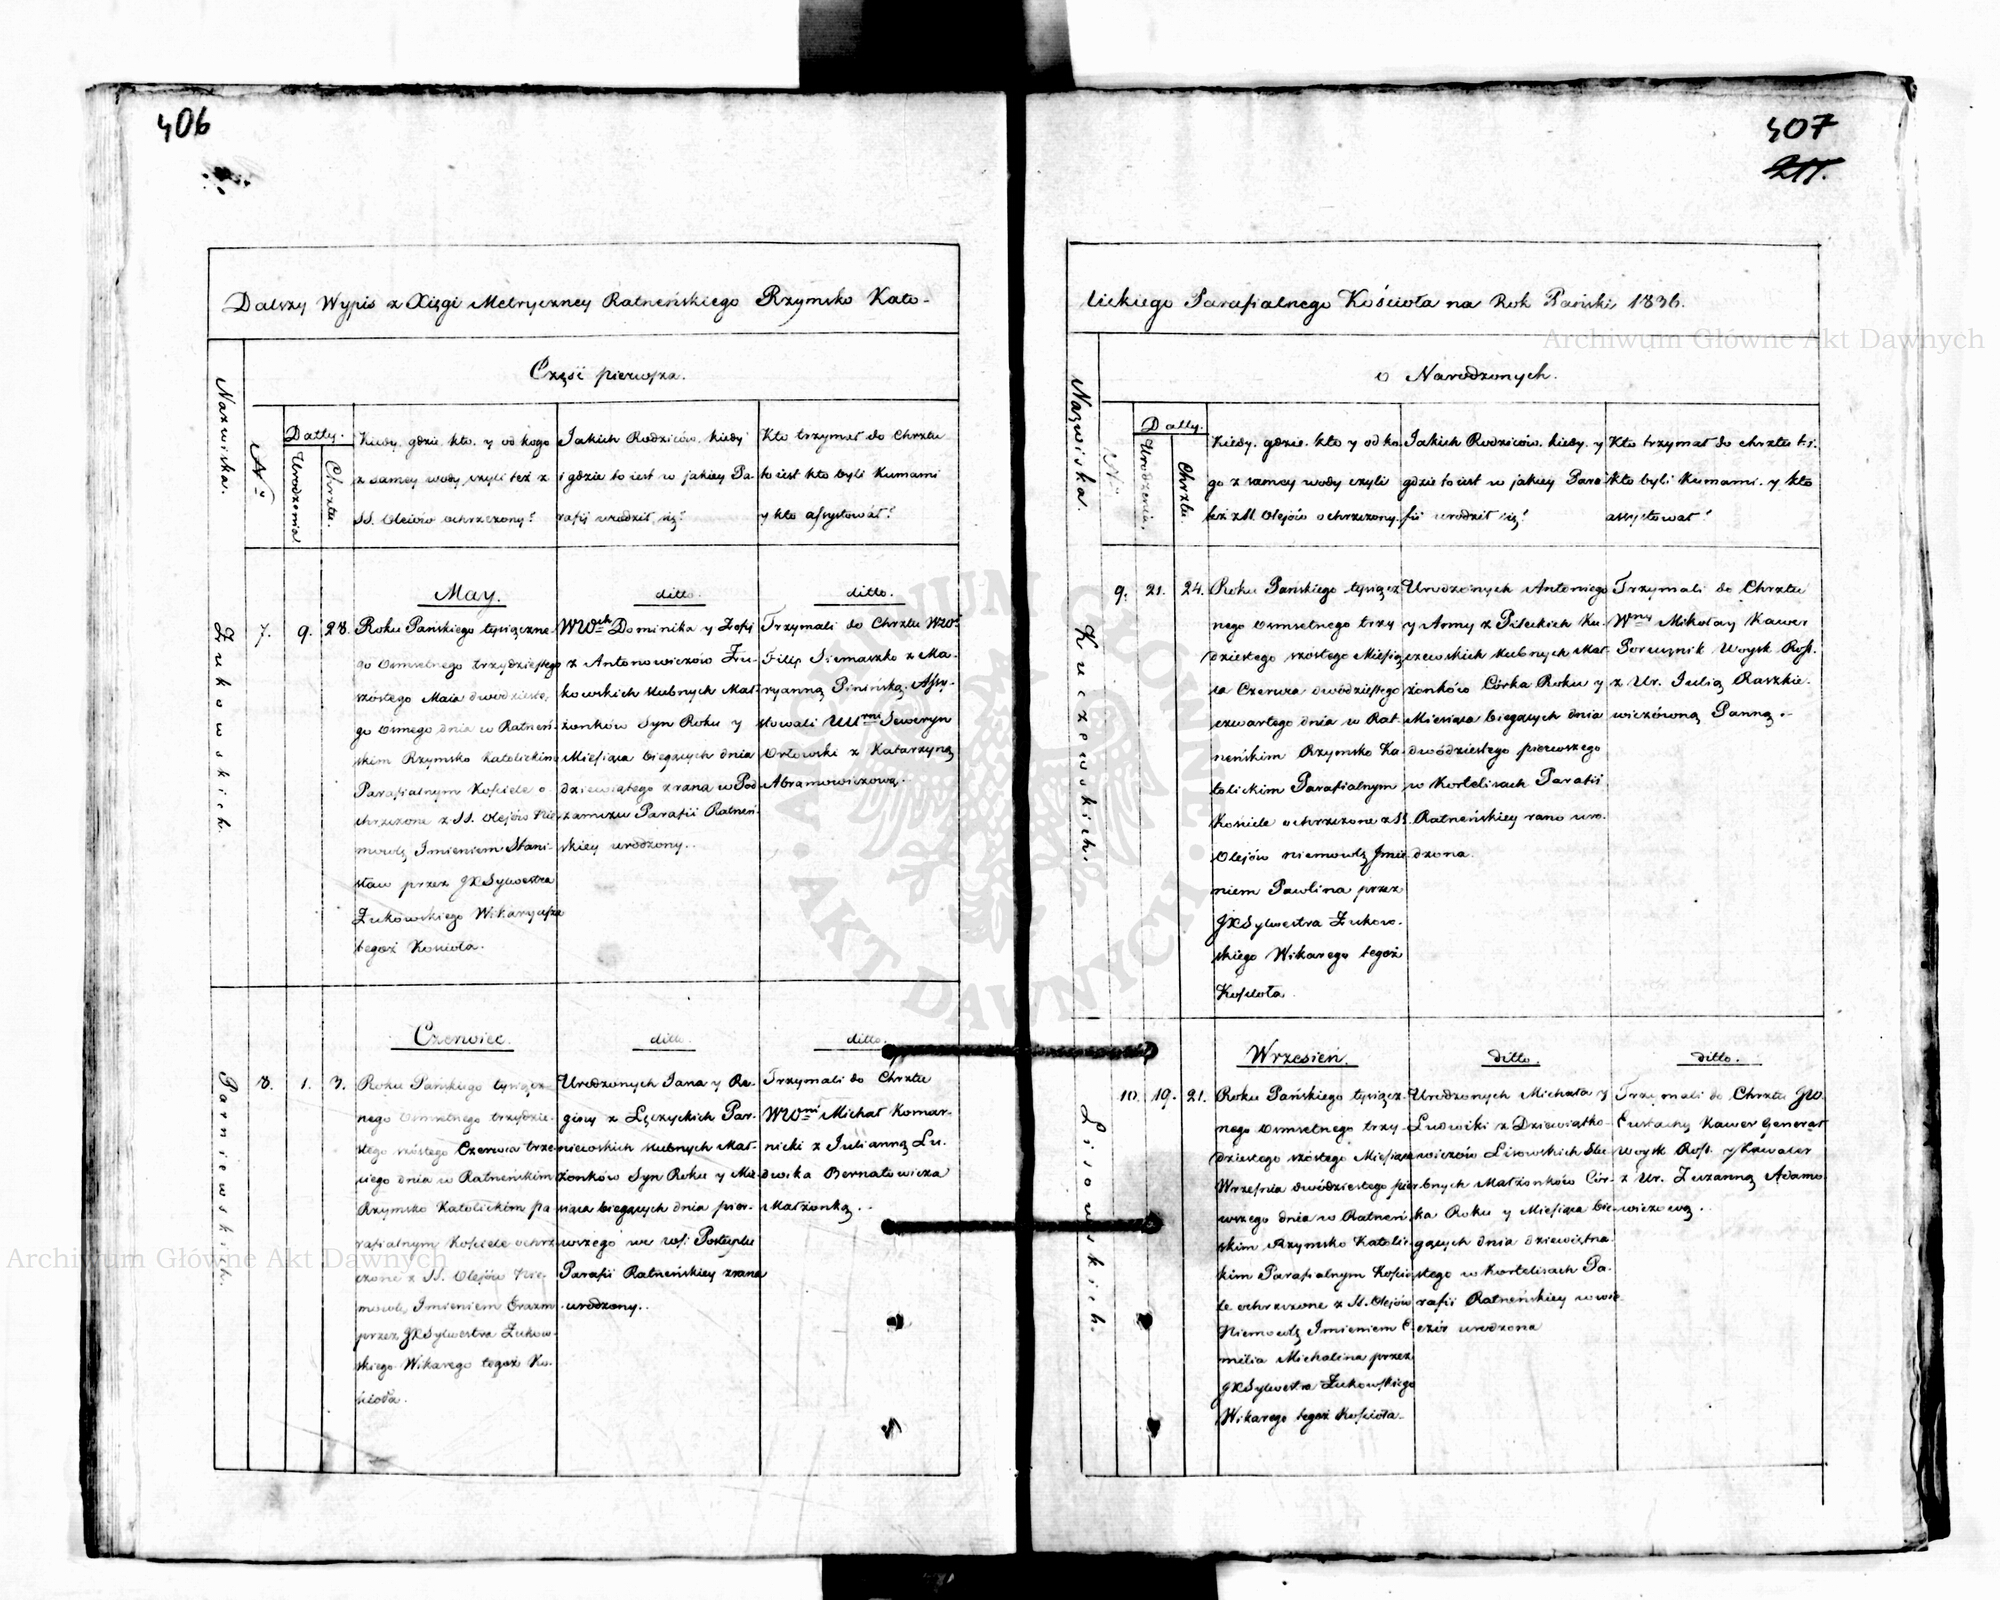 406
Dalszy Wypis z Xięgi Metryczney Ratneńskiego Rzymsko Kato-
Część pierwsza.
Nazwiska.
Nº
Datty.
Urodzenia
Chrztu.
Kiedy, gdzie, kto, y od kogo
z samey wody czyli też z
SS. Olejów ochrzczony?
Jakich Rodziców, kiedy
i gdzie to iest w jakiey Pa-
rafij urodził się?
Kto trzymał do Chrztu
to iest kto byli Kumami
y kto assystował?
Żukowskich.
7.
9.
28.
May.
Roku Pańskiego tysiączne-
go osmsetnego trzydziestego
szóstego Maia dwodzieste-
go osmego dnia w Ratneń-
skim Rzymsko Katolickim
Parafialnym Kościele o-
chrzczone z SS. Olejów Nie-
mowlę Imieniem Stani-
sław przez JXSylwestra
Żukowskiego Wikaryusza
tegoż Kościoła.
ditto.
WWch Dominika y Zofij
z Antonowiczów Żu-
kowskich ślubnych Mał-
żonków Syn Roku y
Miesiąca bieżących dnia
dziewiątego z rana w Pod
zamczu Parafii Ratneń-
skiey urodzony.
ditto.
Trzymali do Chrztu WW.
Filip Siemaszko z Ma-
ryanną Pinińską. Assy-
stowali UUrni Seweryn
Orłowski z Katarzyną
Abramowiczową.
Parniewskich.
8.
1.
3.
Czerwiec.
Roku Pańskiego tysiącz-
nego osmsetnego trzydzie-
stego szóstego Czerwca trze-
ciego dnia w Ratneńskim
Rzymsko Katolickim pa-
rafialnym Kościele ochrz-
czone z SS. Olejów Nie-
mowlę Imieniem Erazm
przez JXSylwestra Żukow-
skiego Wikarego tegoż Ko-
ścioła.
ditto.
Urodzonych Jana y Re-
giny z Łęczyckich Par-
niewskich ślubnych Mał-
żonków Syn Roku y Mie-
siąca bieżących dnia pier-
wszego we wsi Postuplu
Parafii Ratneńskiey z rana
urodzony.
ditto.
Trzymali do Chrztu
WWni Michał Komar-
nicki z Julianną Lu-
dwika Bernatowicza
Małżonką.
407
211.
lickiego Parafialnego Kościoła na Rok Pański 1836.
o Narodzonych.
Nazwiska
Nº
Datty.
Urodzenia.
Chrztu.
Kiedy, gdzie, kto y od ko-
go z samey wody czyli
też z SS. Olejów ochrzczony.
Jakich Rodziców, kiedy, y
gdzie to iest w jakiey Para
fii urodził się?
Kto trzymał do chrztu t.i.
kto byli Kumami. y kto
assystował?
Kuczewskich.
9.
21.
24.
Roku Pańskiego tysiącz
nego osmsetnego trzy
dziestego szóstego Miesią
ca Czerwca dwódziestego
czwartego dnia w Rat-
neńskim Rzymsko Ka-
tolickim Parafialnym
Kościele ochrzczone z SS.
Olejów niemowlę Jmie
niem Pawlina przez
JXSylwestra Żukow-
skiego Wikarego tegoż
Kościoła.
Urodzonych Antoniego
y Anny z Piłeckich Ku-
czewskich ślubnych Mał-
żonków Córka Roku y
Miesiąca bieżących dnia
dwódziestego pierwszego
w Kortelisach Parafii
Ratneńskiey rano uro-
dzona.
Trzymali do Chrztu
Wny Mikołay Kawer
Porucznik Woysk Ross.
z Ur. Julią Raszkie-
wiczówną Panną.
Lisowskich.
10.
19.
21.
Wrzesień.
Roku Pańskiego tysiącz-
nego osmsetnego trzy-
dziestego szóstego Miesiąca
Września dwódziestego pier-
wszego dnia w Ratneń-
skim Rzymsko Katolic-
kim Parafialnym Kościo
le ochrzczone z SS. Olejów
Niemowlę Imieniem E-
milia Michalina przez
JXSylwestra Żukowskiego
Wikarego tegoż Kościoła.
ditto.
Urodzonych Michała y
Ludwiki z Dziewiątko-
wiczów Lisowskich Ślu-
bnych Małżonków Cór-
ka Roku y Miesiąca bie-
żących dnia dziewiętna-
stego w Kortelisach Pa-
rafii Ratneńskiey w wie-
czór urodzona
ditto.
Trzymali do Chrztu JW.
Eustachy Kawer Generał
Woysk Ross. y Kawaler
z Ur. Zuzanną Adamo
wiczową.
Archiwum Główne Akt Dawnych
Archiwum Główne Akt Dawnych